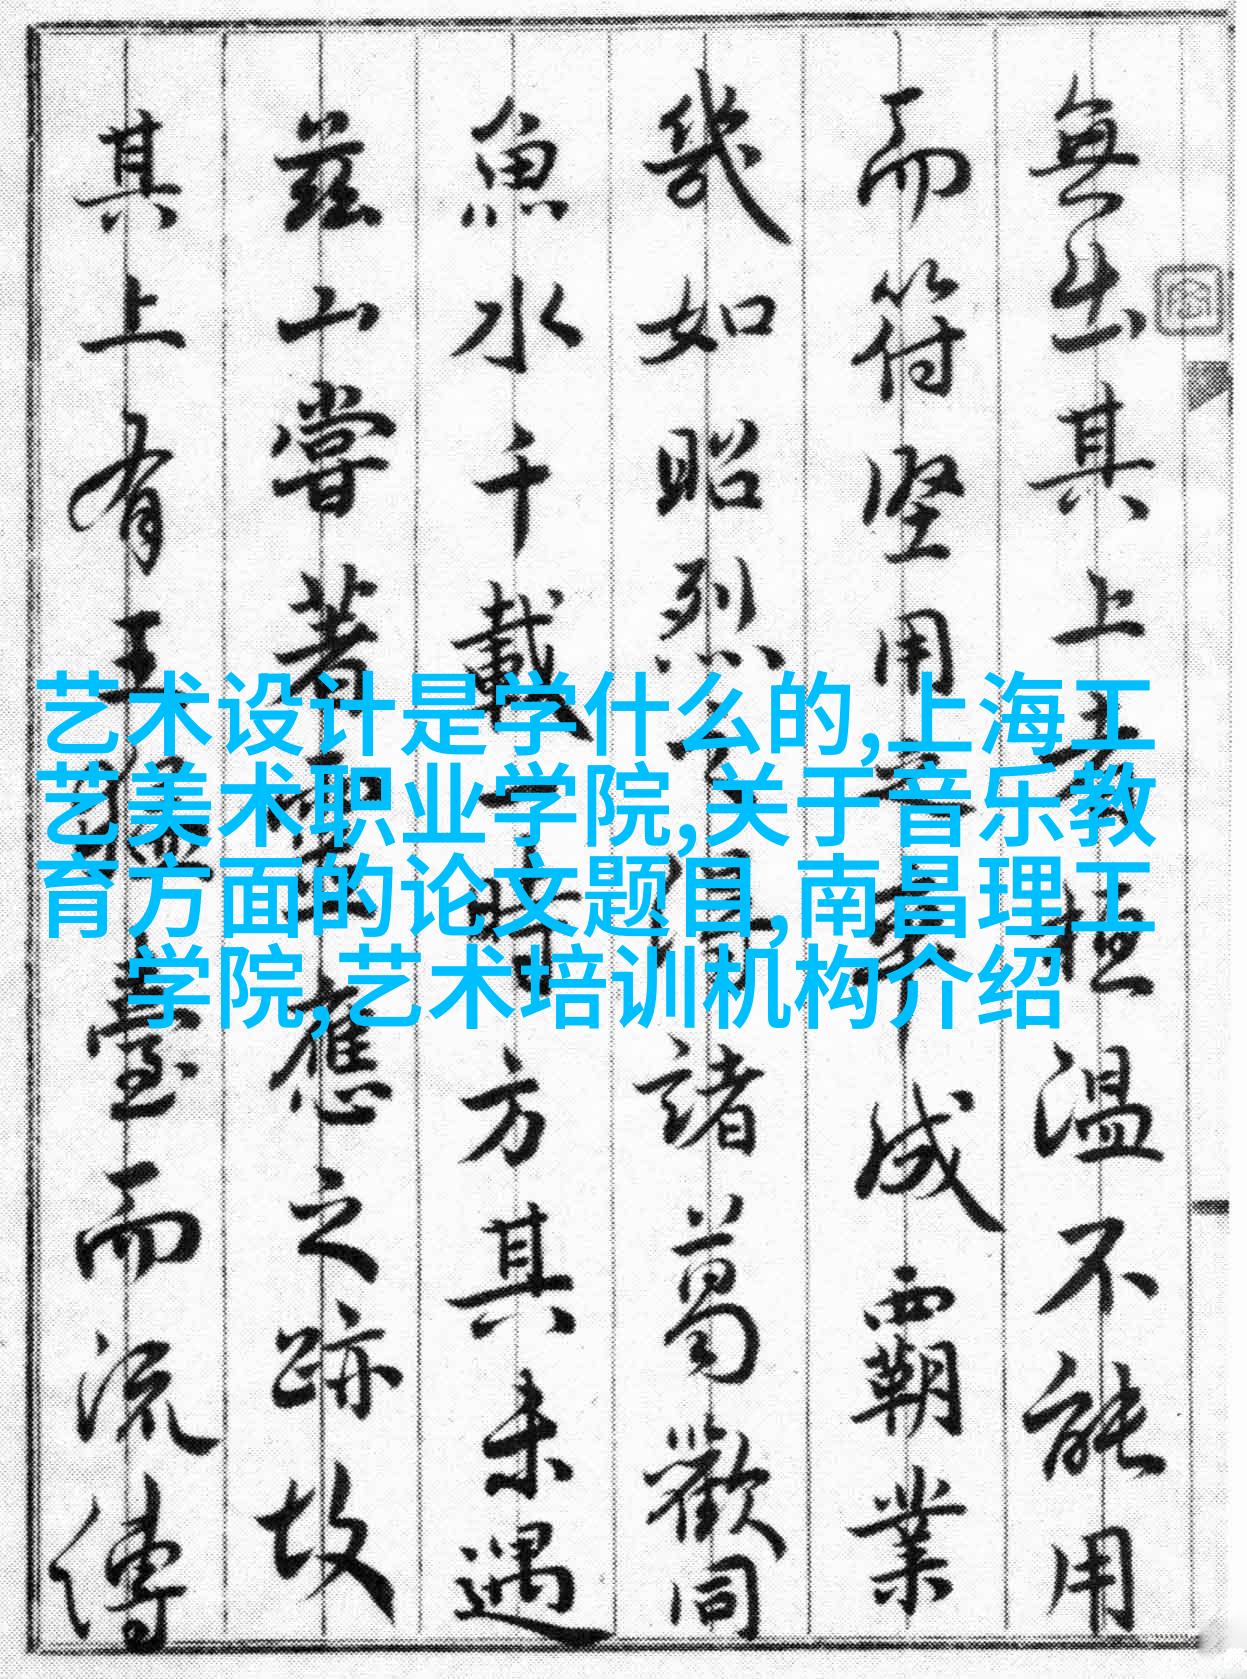 無出其上者桓温不能用
而符坚用之卒成覇業
幾如昭烈之得諸葛歡同
魚水千載一時方其未遇
茲山嘗著靈應之跡故
其上有王猛臺而流傳
艺术设计是学什么的,上海工
艺美术职业学院,关于音乐教
育方面的论文题目,南昌理工
学院,艺术培训机构介绍